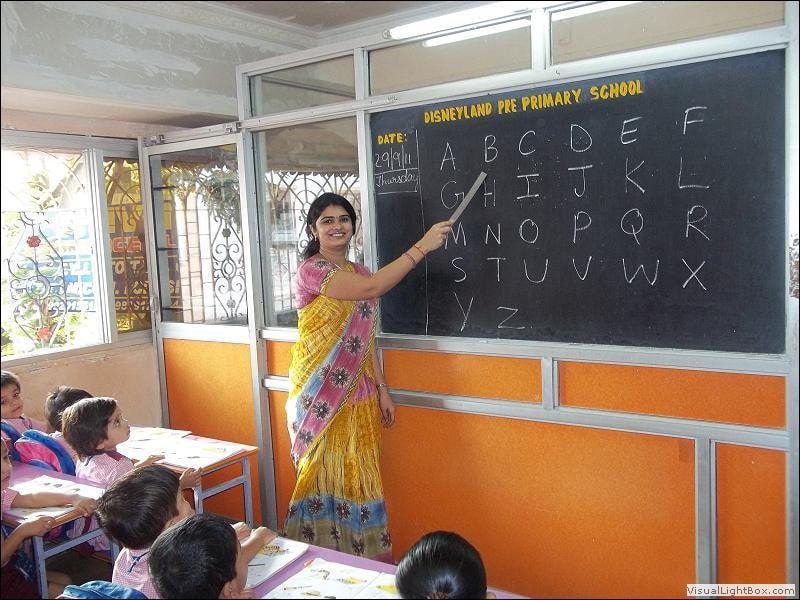 DISNEYLAND PRE PRIMARY SCHOOL
DATE:
29/9/11
Thursday
A B C D E F
G H I J K L
M N O P Q R
S T U V W X
Y Z
VisualLightBox.com